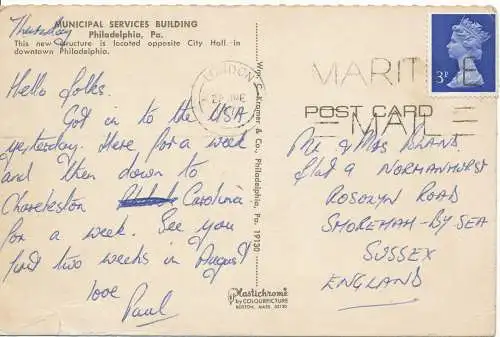 Thursday
MUNICIPAL SERVICES BUILDING
Philadelphia, Pa.
This new structure is located opposite City Hall in
downtown Philadelphia.
Hello folks.
Got in to the USA
yesterday. Here for a week
and then down to
Charleston Carolina
for a week. See you
first two weeks in August
love
Paul
Wm. C. Kramer & Co., Philadelphia, Pa. 19130
Plastichrome
by COLOURPICTURE
BOSTON, MASS. 02130
LONDON
MARITIME
MAIL
3P
POST CARD
Mr & Mrs
flat 2 NORMANHURST
ROSSLYN ROAD
SHOREHAM-BY-SEA
SUSSEX
ENGLAND